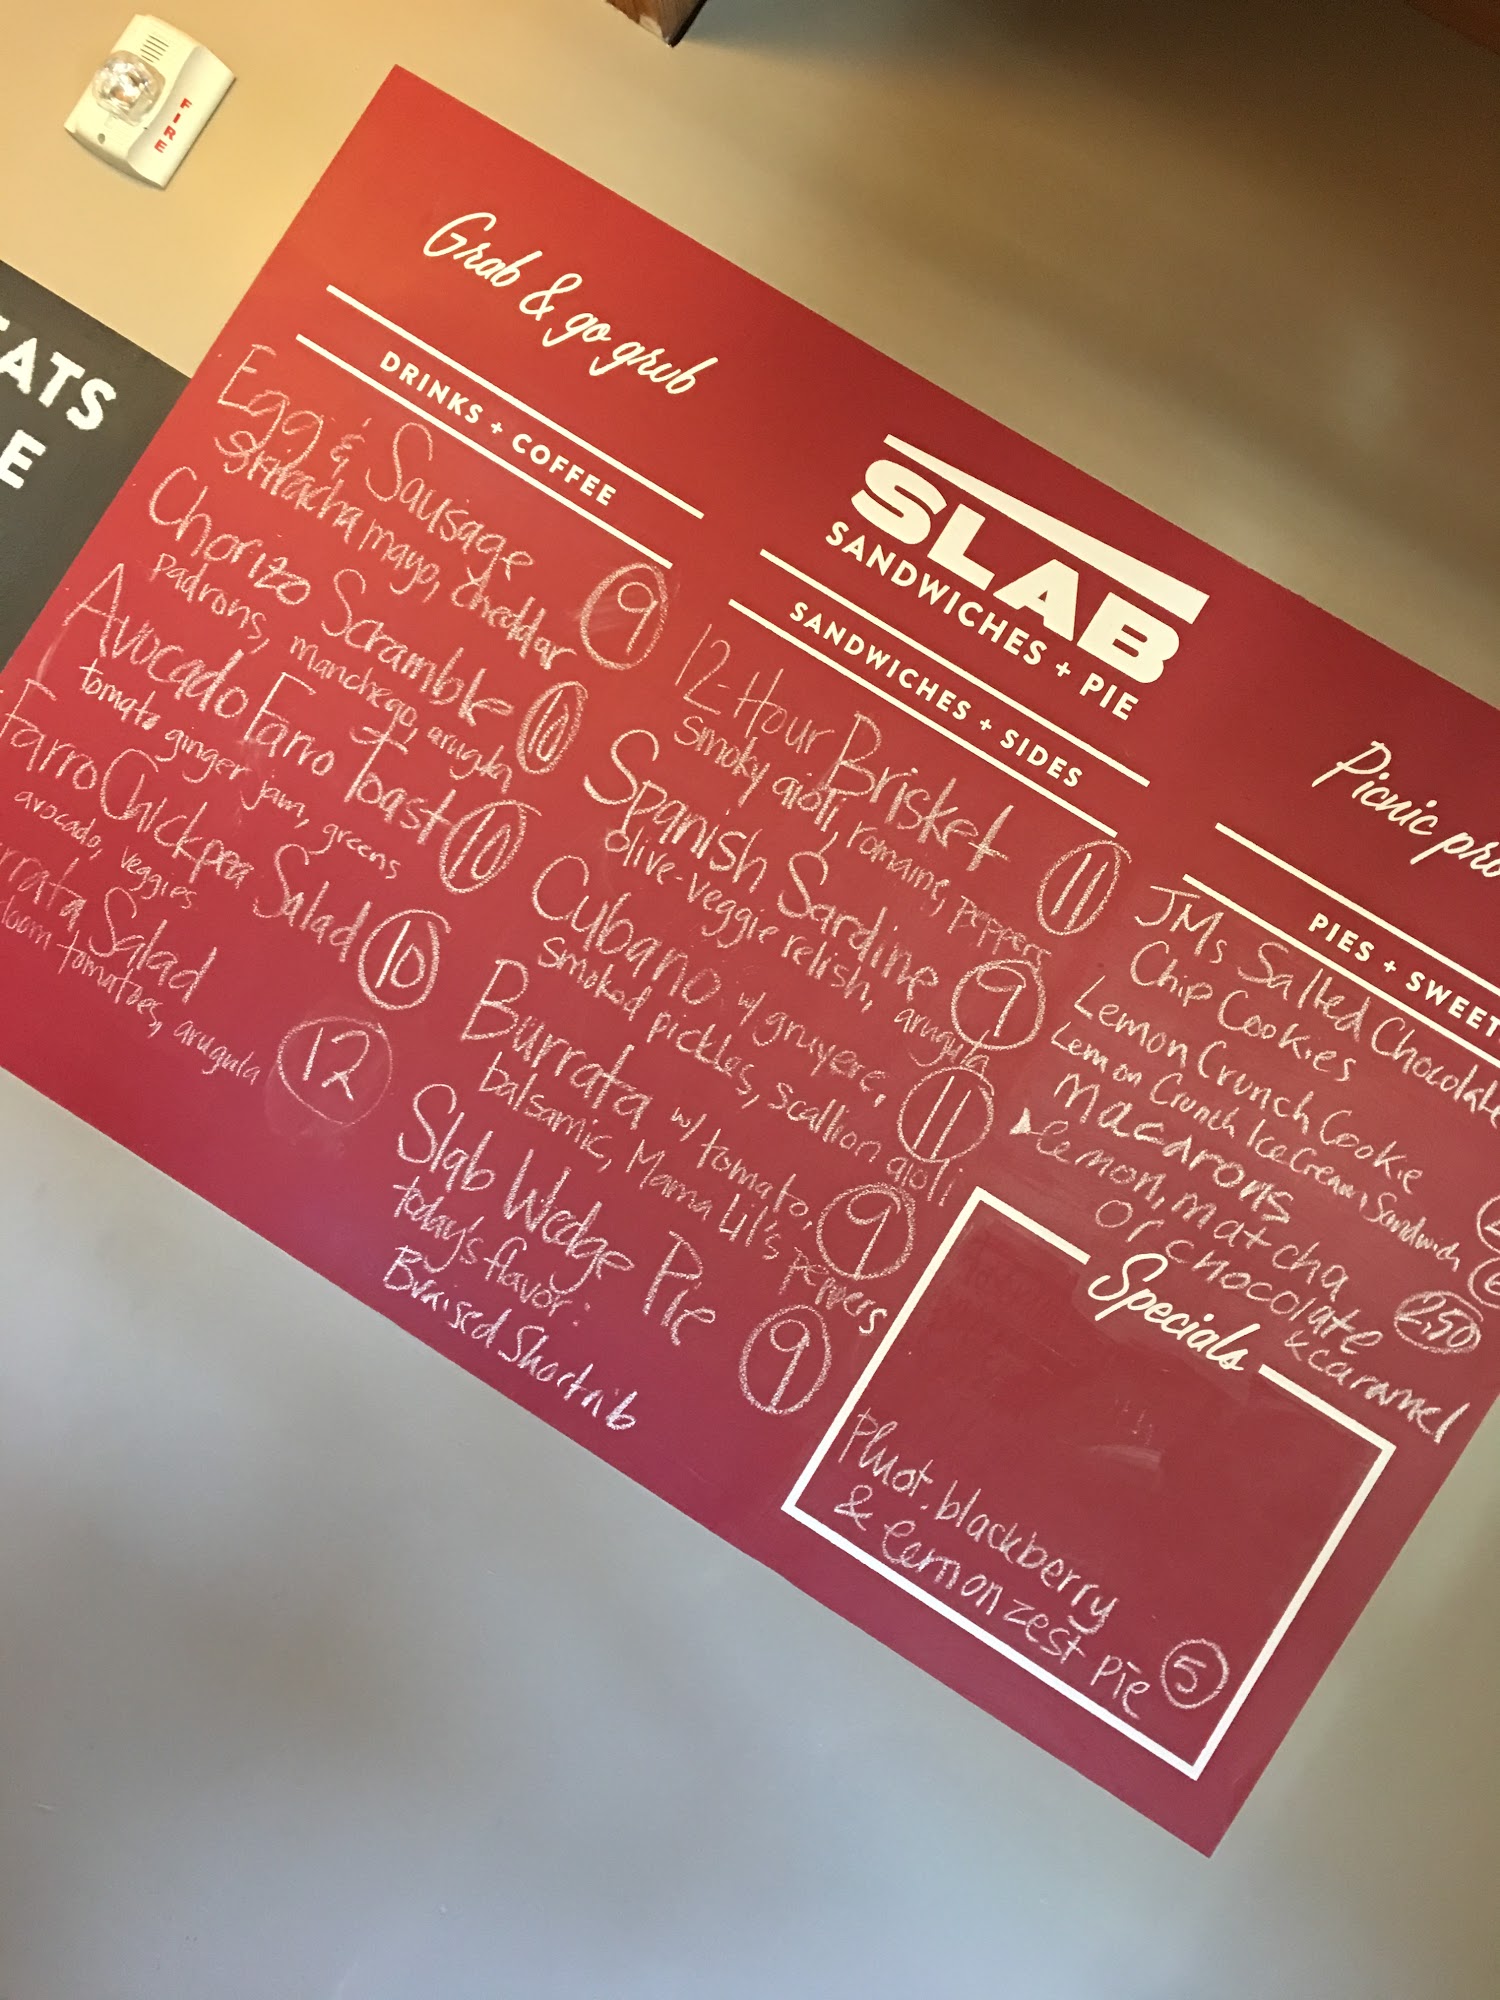 FIRE
EATS
E
Grab & go grub
DRINKS + COFFEE
Egg & Sausage
Sriracha mayo, cheddar 9
Chorizo Scramble
padrons, manchego, arugula 10
Avocado Farro Toast
tomato ginger jam, greens 10
Farro Chickpea Salad
avocado, veggies 10
rrata Salad
loom tomatoes, arugula 12
SLAB
SANDWICHES + PIE
SANDWICHES + SIDES
12-Hour Brisket
smoky aioli, romaine, peppers 11
Spanish Sardine
olive-veggie relish, arugula 9
Cubano w/ gruyere,
smoked pickles, scallion aioli 11
Burrata w/ tomato,
balsamic, Mama Lil's peppers 9
Slab Wedge Pie
today's flavor: 9
Braised Shortrib
Picnic pro
PIES + SWEET
JMs Salted Chocolate
Chip Cookies
Lemon Crunch Cookie
Lemon Crunch Ice Cream Sandwich
Macarons
lemon, matcha 2.50
or chocolate
& caramel
Specials
Pluot, blackberry
& lemon zest pie 5